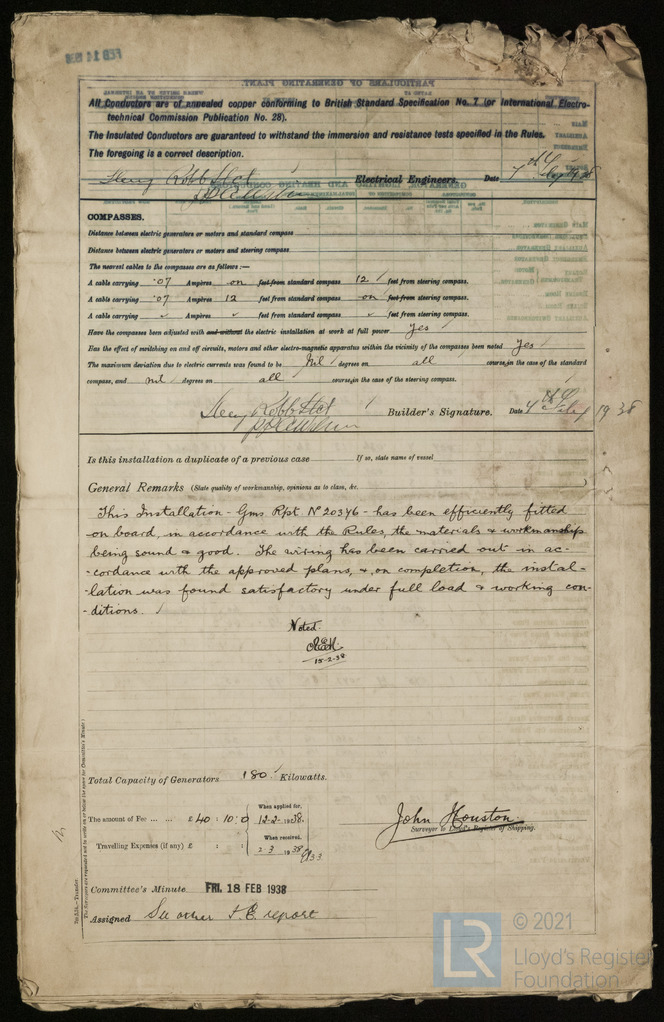 FEB 14 1938
All Conductors are of annealed copper conforming to British Standard Specification No. 7 (or International Electro-
technical Commission Publication No. 28).
The Insulated Conductors are guaranteed to withstand the immersion and resistance tests specified in the Rules.
The foregoing is a correct description.
Henry Robb Ltd Electrical Engineers. Date 7th Feby 1938
COMPASSES.
Distance between electric generators or motors and standard compass
Distance between electric generators or motors and steering compass
The nearest cables to the compasses are as follows:—
A cable carrying ·07 Ampères on feet from standard compass 12 feet from steering compass.
A cable carrying ·07 Ampères 12 feet from standard compass on feet from steering compass.
A cable carrying Ampères feet from standard compass feet from steering compass.
Have the compasses been adjusted with and without the electric installation at work at full power Yes
Has the effect of switching on and off circuits, motors and other electro-magnetic apparatus within the vicinity of the compasses been noted Yes
The maximum deviation due to electric currents was found to be Nil degrees on all course, in the case of the standard
compass, and nil degrees on all course, in the case of the steering compass.
Henry Robb Ltd Builder's Signature. Date 4th Feby 1938
Is this installation a duplicate of a previous case If so, state name of vessel
General Remarks (State quality of workmanship, opinions as to class, &c.
This Installation - Gms Rpt No 20346 - has been efficiently fitted
on board, in accordance with the Rules, the materials & workmanship
being sound & good. The wiring has been carried out in ac-
-cordance with the approved plans, &, on completion, the instal-
-lation was found satisfactory under full load & working con-
-ditions.
Noted
15-2-38
Total Capacity of Generators 180 Kilowatts.
The amount of Fee ... ... £ 40 : 10 : 0 When applied for, 12-2-1938.
Travelling Expenses (if any) £ : : When received, 2-3 1938
John Houston
Surveyor to Lloyd's Register of Shipping.
Committee's Minute FRI. 18 FEB 1938
Assigned See other F.E. report
© 2021
LR
Lloyd's Register
Foundation